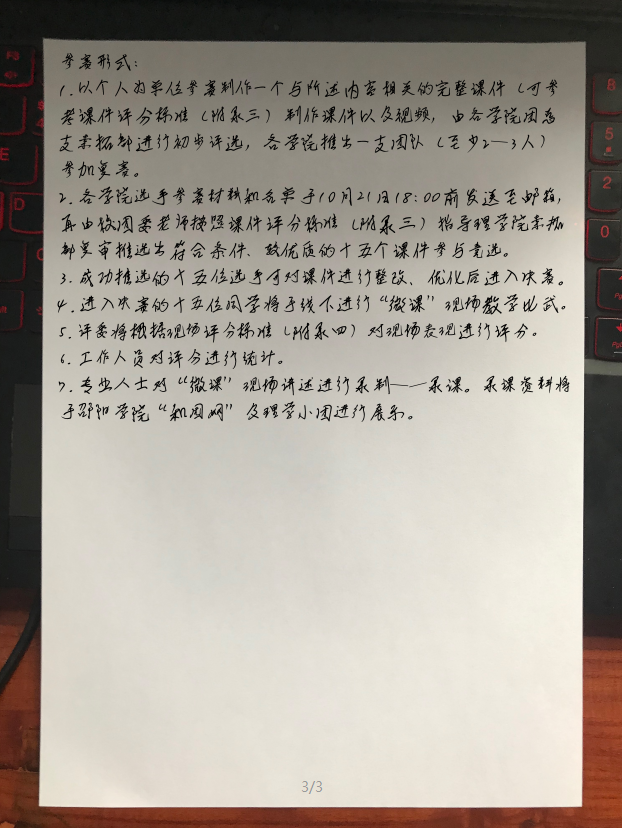 参赛形式:
1.以个人为单位参赛制作一个与所述内容相关的完整课件(可参
考课件评分标准(附录三)制作课件以及视频,由各学院团总
支素拓部进行初步评选,各学院推出一支团队(至少2—3人)
参加复赛。
2.各学院选手参赛材料和名单于10月21日18:00前发送至邮箱,
再由校团委老师按照课件评分标准(附录三)指导理学院素拓
部复审推选出符合条件、较优质的十五个课件参与竞选。
3.成功推选的十五位选手可对课件进行整改、优化后进入决赛。
4.进入决赛的十五位同学将于线下进行“微课”现场教学比武。
5.评委将根据现场评分标准(附录四)对现场表现进行评分。
6.工作人员对评分进行统计。
7.专业人士对“微课”现场讲述进行录制——录课。录课资料将
于邵阳学院“和园网”及理学小团进行展示。
3/3